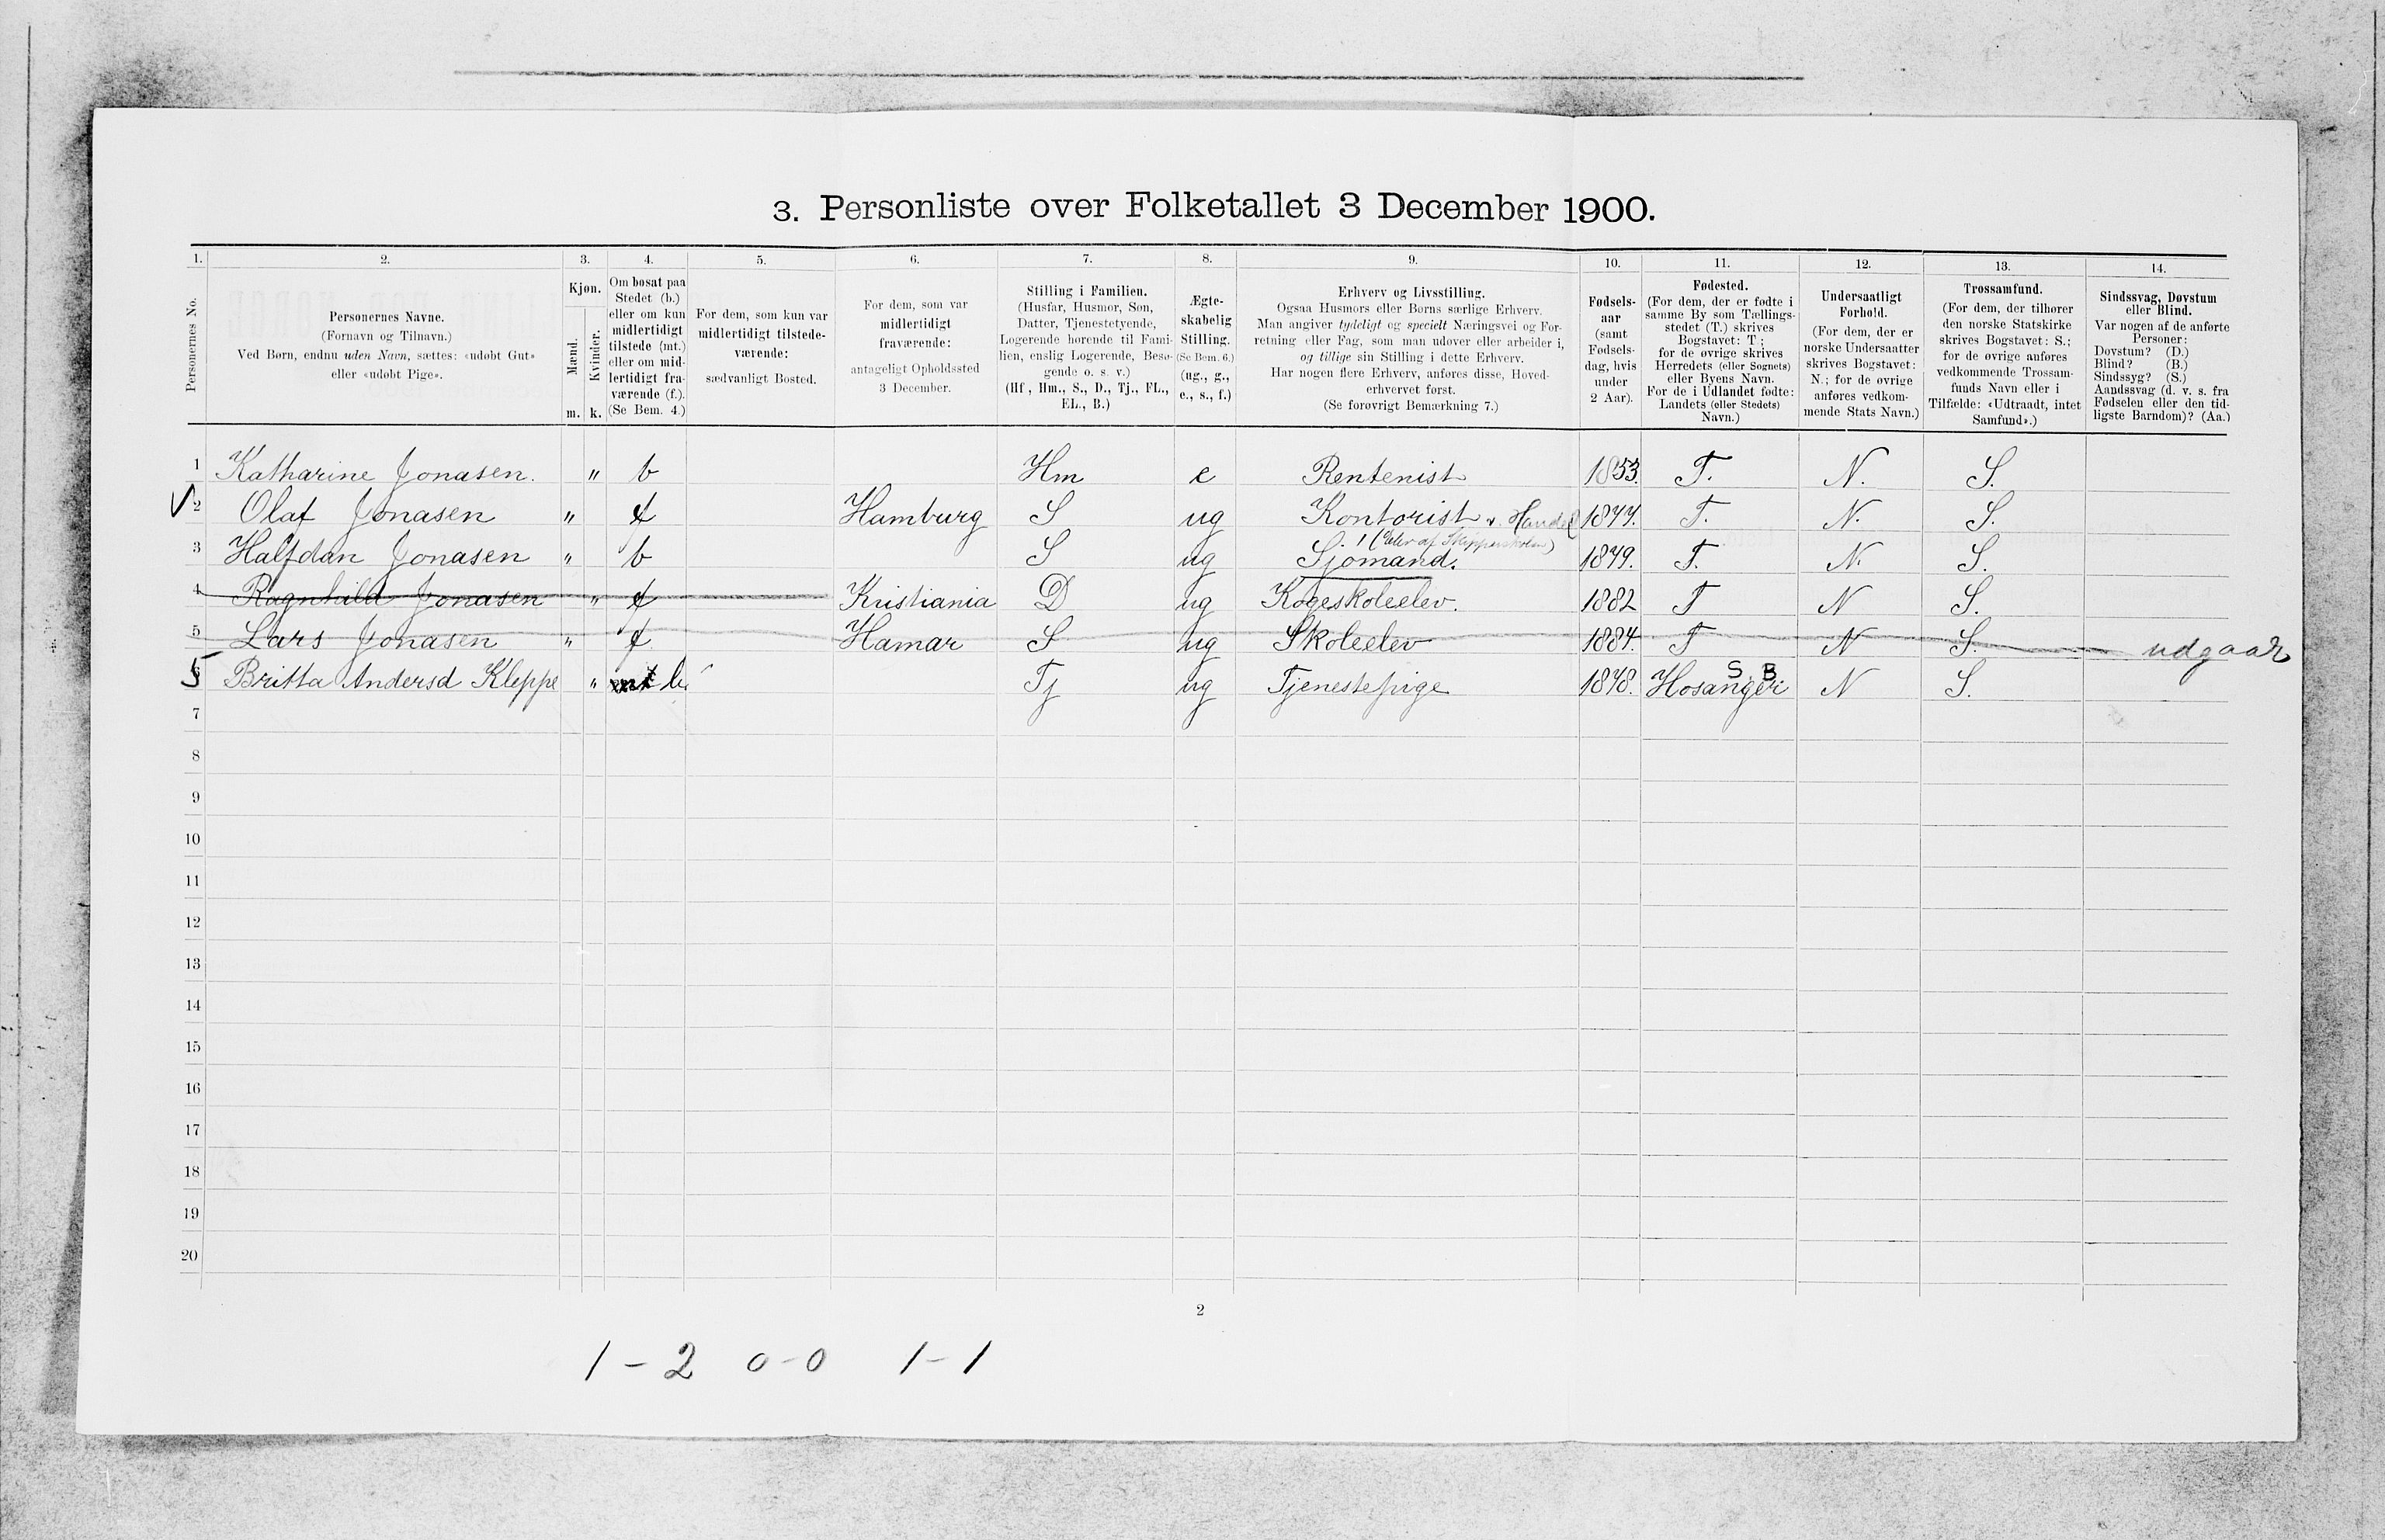 3. Personliste over Folketallet 3 December 1900.
1. 2. 3. 4. 5. 6. 7. 8. 9. 10. 11. 12. 13. 14.
Personernes No.
Personernes Navne.
(Fornavn og Tilnavn.)
Ved Børn, endnu uden Navn, sættes: «udøbt Gut»
eller «udøbt Pige».
Kjøn.
Mænd.
Kvinder.
m. k.
Om bosat paa
Stedet (b.)
eller om kun
midlertidigt
tilstede (mt.)
eller om mid-
lertidigt fra-
værende (f.).
(Se Bem. 4.)
For dem, som kun var
midlertidigt tilstede-
værende:
sædvanligt Bosted.
For dem, som var
midlertidigt
fraværende:
antageligt Opholdssted
3 December.
Stilling i Familien.
(Husfar, Husmor, Søn,
Datter, Tjenestetyende,
Logerende hørende til Fami-
lien, enslig Logerende, Besø-
gende o. s. v.)
(Hf, Hm., S., D., Tj., FL.,
EL., B.)
Ægte-
skabelig
Stilling.
(Se Bem. 6.)
(ug., g.,
e., s., f.)
Erhverv og Livsstilling.
Ogsaa Husmors eller Børns særlige Erhverv.
Man angiver tydeligt og specielt Næringsvei og For-
retning eller Fag, som man udøver eller arbeider i,
og tillige sin Stilling i dette Erhverv.
Har nogen flere Erhverv, anføres disse, Hoved-
erhvervet først.
(Se forøvrigt Bemærkning 7.)
Fødsels-
aar
(samt
Fødsels-
dag, hvis
under
2 Aar).
Fødested.
(For dem, der er fødte i
samme By som Tællings-
stedet (T.) skrives
Bogstavet: T;
for de øvrige skrives
Herredets (eller Sognets)
eller Byens Navn.
For de i Udlandet fødte:
Landets (eller Stedets)
Navn.)
Undersaatligt
Forhold.
(For dem, der er
norske Undersaatter
skrives Bogstavet:
N.; for de øvrige
anføres vedkom-
mende Stats Navn.)
Trossamfund.
(For dem, der tilhører
den norske Statskirke
skrives Bogstavet: S.;
for de øvrige anføres
vedkommende Trossam-
funds Navn eller i
Tilfælde: «Udtraadt, intet
Samfund».)
Sindssvag, Døvstum
eller Blind.
Var nogen af de anførte
Personer:
Døvstum? (D.)
Blind? (B.)
Sindssyg? (S.)
Aandssvag (d. v. s. fra
Fødselen eller den tid-
ligste Barndom)? (Aa.)
1 Katharine Jonasen. " b Hm e Rentenist 1853. T. N. S.
2 Olaf Jonasen " f Hamburg S ug Kontorist v. Handel 1877. T. N. S.
(Elev af Skipperskolen)
3 Halfdan Jonasen " b S ug Sjömand. 1879. T. N. S.
4 Ragnhild Jonasen " f Kristiania D ug Kogeskoleelev. 1882 T N S.
5 Lars Jonasen " f Hamar S ug Skoleelev 1884. T N S. udgaar
S. B.
5 Britta Andersd Kleppe " mt b Tj ug Tjenestepige 1878. Hosanger N S.
7
8
9
10
11
12
13
14
15
16
17
18
19
20
2
1 - 2 0 - 0 1 - 1